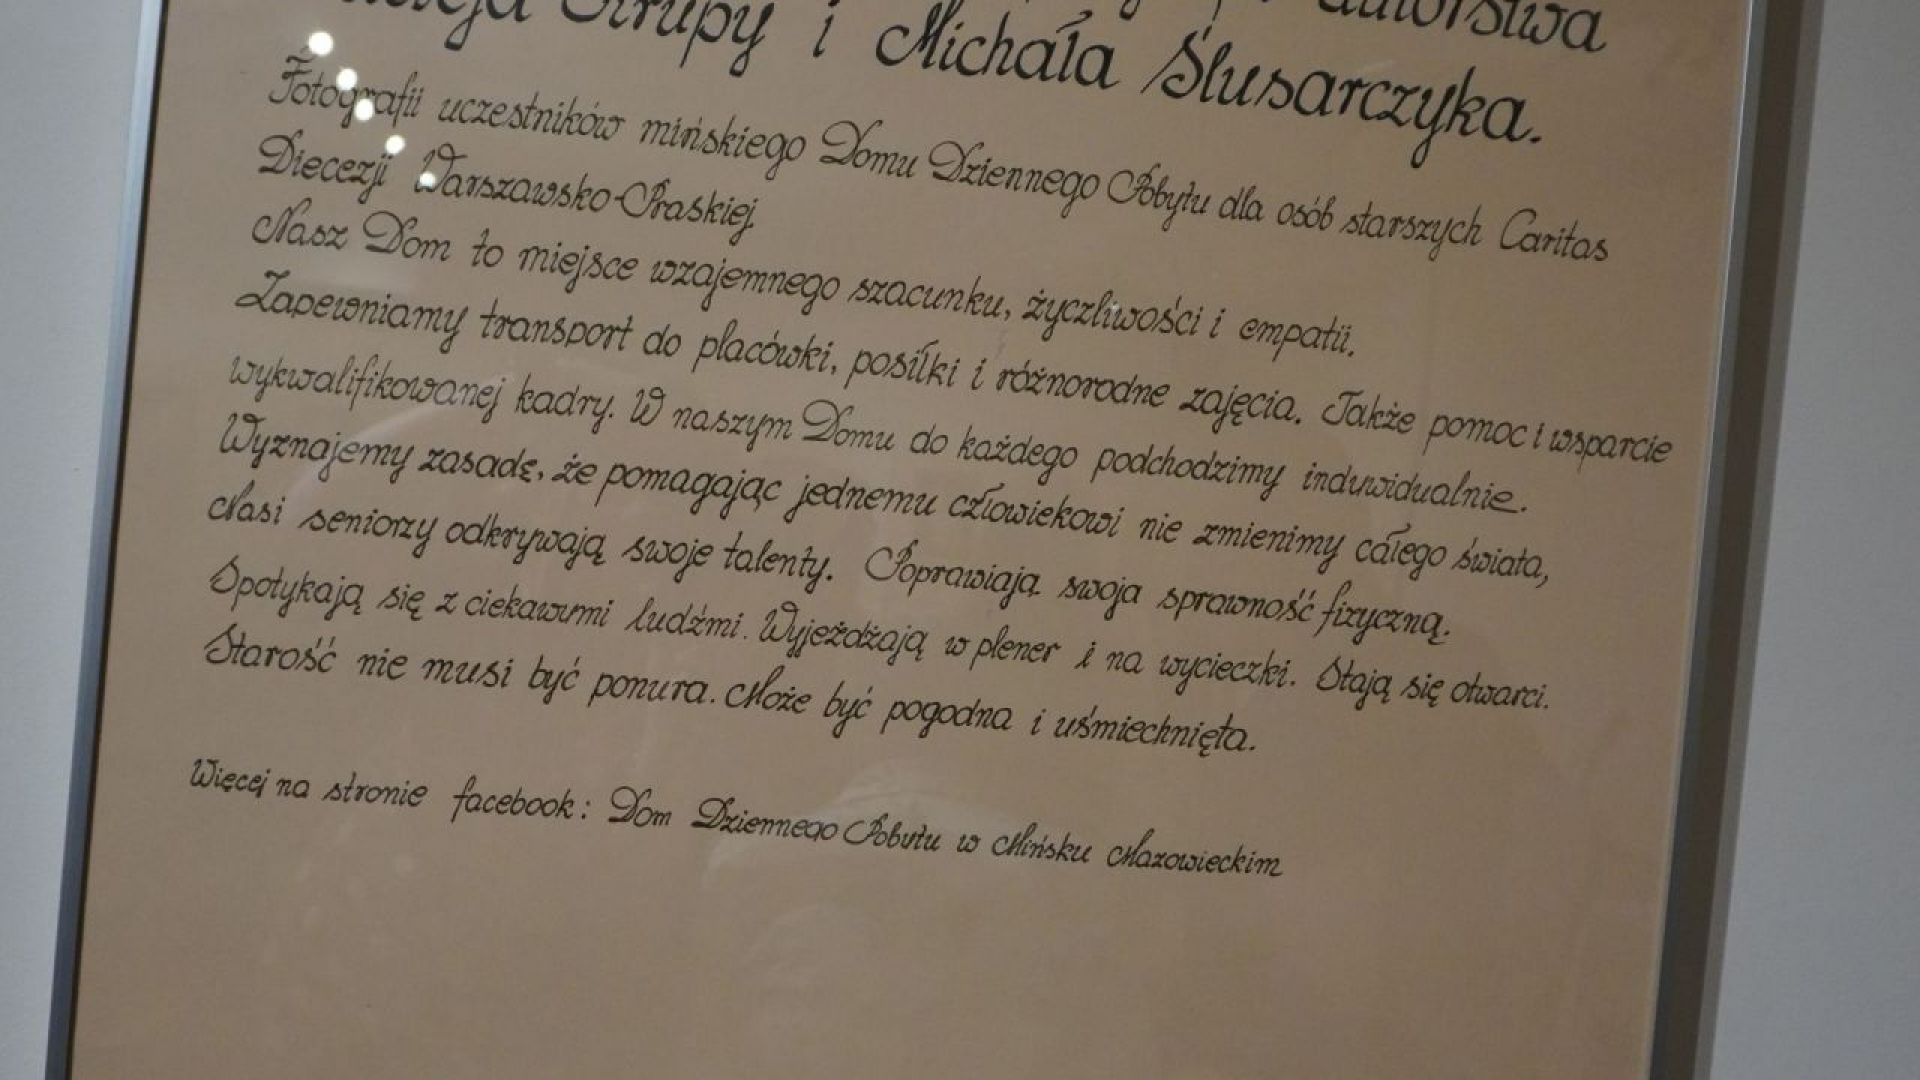 autorstwa
i Michała Ślusarczyka.
Fotografii uczestników mińskiego Domu Dziennego Pobytu dla osób starszych Caritas
Diecezji Warszawsko-Praskiej.
Nasz Dom to miejsce wzajemnego szacunku, życzliwości i empatii.
Zapewniamy transport do placówki, posiłki i różnorodne zajęcia. Także pomoc i wsparcie
wykwalifikowanej kadry. W naszym Domu do każdego podchodzimy indywidualnie.
Wyznajemy zasadę, że pomagając jednemu człowiekowi nie zmienimy całego świata,
Nasi seniorzy odkrywają swoje talenty. Poprawiają swoja sprawność fizyczną.
Spotykają się z ciekawymi ludźmi. Wyjeżdżają w plener i na wycieczki. Stają się otwarci.
Starość nie musi być ponura. Może być pogodna i uśmiechnięta.
Więcej na stronie facebook: Dom Dziennego Pobytu w Mińsku Mazowieckim